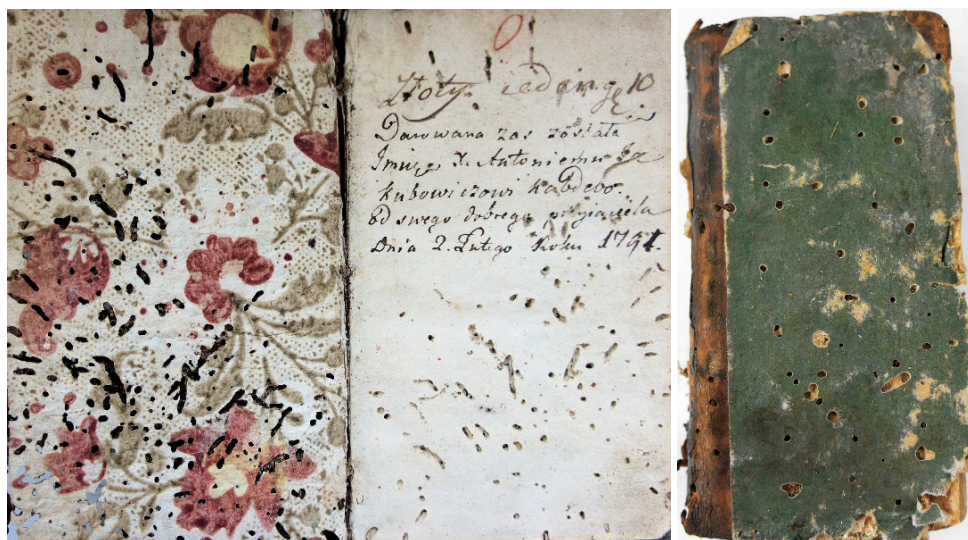 Złoty jeden g 10
Darowana zas została
Antoniemu
kubowiczowi
od swego dobrego przyjaciela
Dnia 2. Lutego Roku 1791.